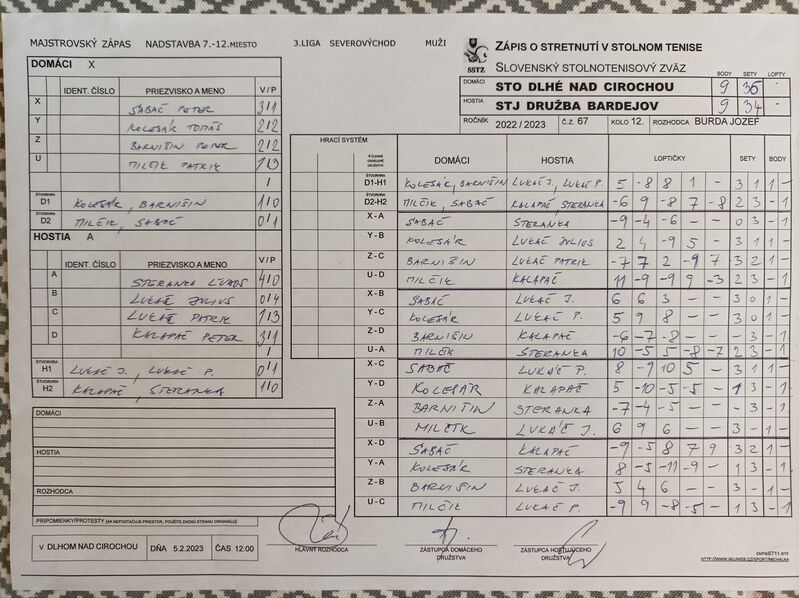 MAJSTROVSKÝ ZÁPAS NADSTAVBA 7.-12.MIESTO 3.LIGA SEVEROVÝCHOD MUŽI
ZÁPIS O STRETNUTÍ V STOLNOM TENISE
SSTZ SLOVENSKÝ STOLNOTENISOVÝ ZVÄZ
BODY SETY LOPTY
DOMÁCI STO DLHÉ NAD CIROCHOU 9 36 -
HOSTIA STJ DRUŽBA BARDEJOV 9 34 -
ROČNÍK 2022 / 2023 Č.Z. 67 KOLO 12. ROZHODCA BURDA JOZEF
DOMÁCI X
IDENT. ČÍSLO PRIEZVISKO A MENO V/P
X SABAČ PETER 3/1
Y KOLESÁR TOMÁŠ 2/2
Z BARNIŠIN PETER 2/2
U MILČIK PATRIK 1/3
/
ŠTVORHRA D1 KOLESÁR, BARNIŠIN 1/0
ŠTVORHRA D2 MILČIK, SABAČ 0/1
HOSTIA A
IDENT. ČÍSLO PRIEZVISKO A MENO V/P
A STERANKA 4/0
B LUKÁČ JULIUS 0/4
C LUKÁČ PATRIK 1/3
D KALAPAČ PETER 3/1
/
ŠTVORHRA H1 LUKÁČ J., LUKÁČ P. 0/1
ŠTVORHRA H2 KALAPAČ, STERANKA 1/0
HRACÍ SYSTÉM DOMÁCI HOSTIA LOPTIČKY SETY BODY
ŠTVORHRA D1-H1 KOLESÁR, BARNIŠIN LUKÁČ J., LUKÁČ P. 5 -8 8 1 - 3 1 1 -
ŠTVORHRA D2-H2 MILČIK, SABAČ KALAPAČ STERANKA -6 9 -8 7 -8 2 3 - 1
X-A SABAČ STERANKA -9 -4 -6 - - 0 3 - 1
Y-B KOLESÁR LUKÁČ JULIUS 2 4 -9 5 - 3 1 1 -
Z-C BARNIŠIN LUKÁČ PATRIK -7 7 2 -9 7 3 2 1 -
U-D MILČIK KALAPAČ 11 -9 -9 9 -3 2 3 - 1
X-B SABAČ LUKÁČ J. 6 6 3 - - 3 0 1 -
Y-C KOLESÁR LUKÁČ P. 5 9 8 - - 3 0 1 -
Z-D BARNIŠIN KALAPAČ -6 -7 -8 - - - 3 - 1
U-A MILČIK STERANKA 10 -5 5 -8 -7 2 3 - 1
X-C SABAČ LUKÁČ P. 8 -9 10 5 - 3 1 1 -
Y-D KOLESÁR KALAPAČ 5 -10 -5 -5 - 1 3 - 1
Z-A BARNIŠIN STERANKA -7 -4 -5 - - - 3 - 1
U-B MILČIK LUKÁČ J. 6 9 6 - - 3 - 1 -
X-D SABAČ KALAPAČ -9 -5 8 7 9 3 2 1 -
Y-A KOLESÁR STERANKA 8 -5 -11 -9 - 1 3 - 1
Z-B BARNIŠIN LUKÁČ J. 5 4 6 - - 3 - 1 -
U-C MILČIK LUKÁČ P. -9 9 -8 -5 - 1 3 - 1
DOMÁCI
HOSTIA
ROZHODCA
PRIPOMIENKY/PROTESTY (AK NEPOSTAČUJE PRIESTOR, POUŽITE ZADNÚ STRANU ORIGINÁLU)
V DLHOM NAD CIROCHOU DŇA 5.2.2023 ČAS 12:00
HLAVNÝ ROZHODCA
ZÁSTUPCA DOMÁCEHO DRUŽSTVA
ZÁSTUPCA HOSŤUJÚCEHO DRUŽSTVA
ZAPISST11.RTF
HTTP://WWW.MUJWEB.CZ/SPORT/MICHALKA